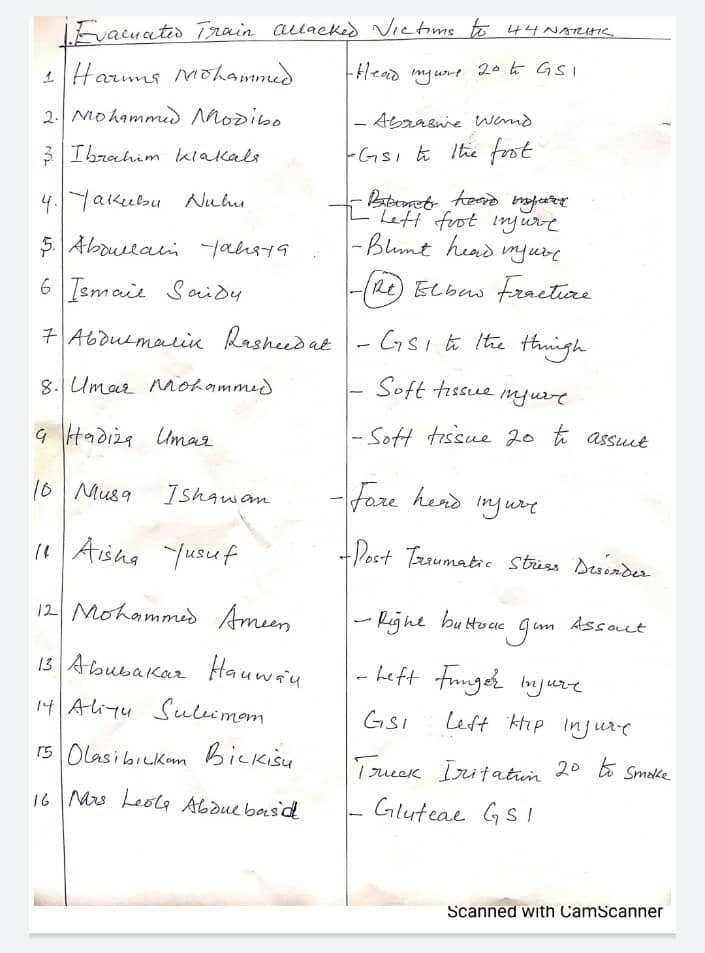 1. Evacuated Train attacked Victims to 44 NARHK
1 Haruna Mohammed - Head injure 20 to GSI
2. Mohammed Modibo - Abrasive wond
3 Ibrahim Wakala - GSI to the foot
4. Yakubu Nuhu - head injure
Left foot injure
5. Abdullahi Yahaya - Blunt head injure
6 Ismail Saidu - (Rt) Elbow Fracture
7 Abdulmalik Rasheedat - GSI to the thingh
8. Umar Mohammed - Soft tissue injure
9 Hadiza Umar - Soft tissue 20 to assult
10 Musa Ishawam - Fore head injure
11 Aisha Yusuf - Post Traumatic Stress Disorder
12 Mohammed Ameen - Right buttoac gun Assault
13 Abubakar Hauwau - Left Finger injure
14 Aliyu Suleimam GSI Left Hip injure
15 Olasibikam Bickisu Truck Iritation 20 to Smoke
16 Mrs Leola Abdulbasid - Gluteal GSI
Scanned with CamScanner